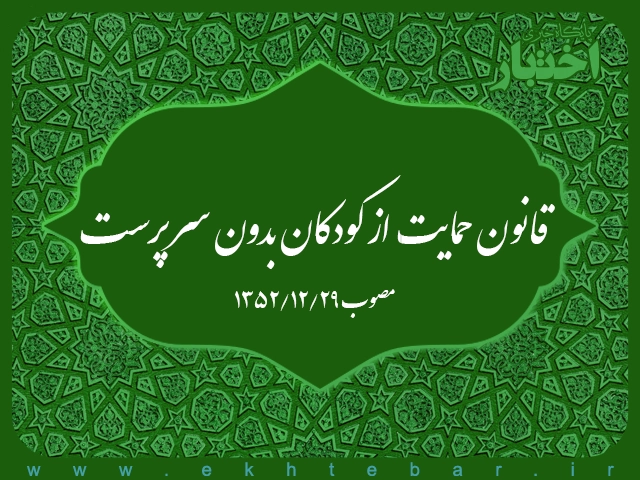 پایگاه خبری
اختبار
قانون حمایت از کودکان بدون سرپرست
مصوب ۱۳۵۲/۱۲/۲۹
www.ekhtebar.ir